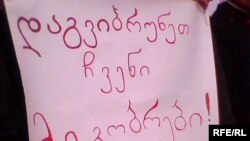 დაგვიბრუნეთ
ჩვენი
მეგობრები!
RFE/RL